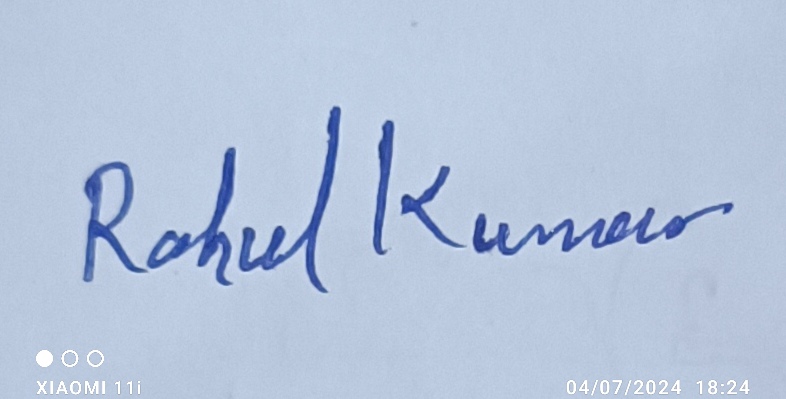 Rahul Kumar
XIAOMI 11i
04/07/2024 18:24